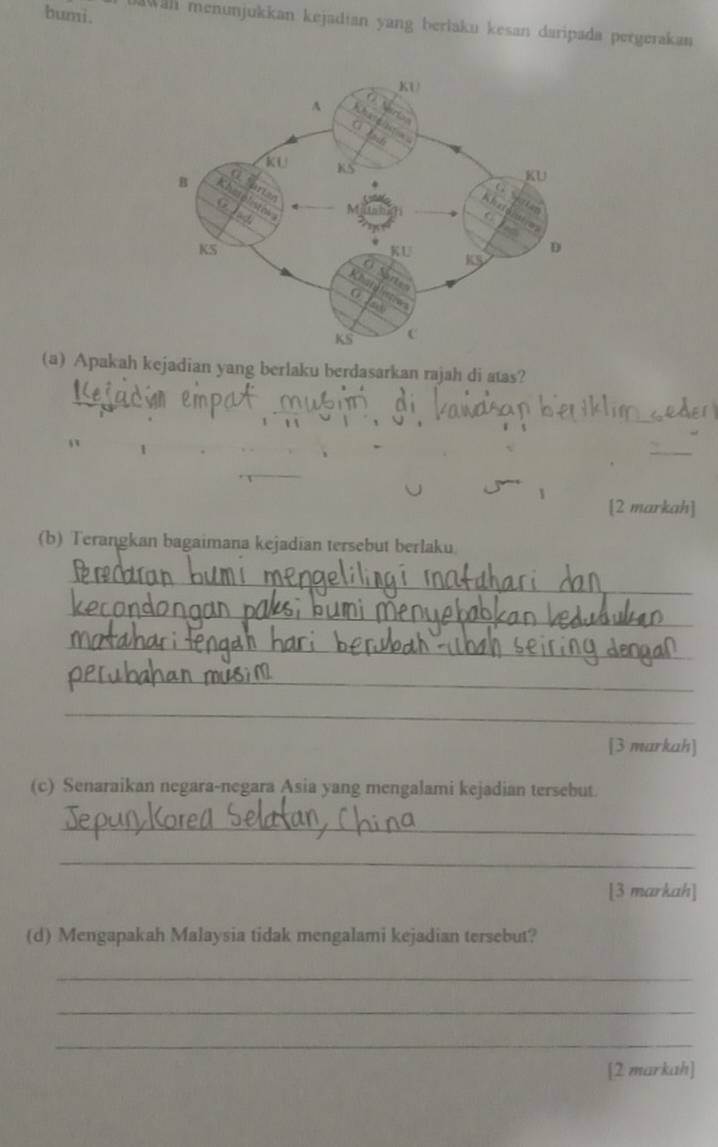 bawah menunjukkan kejadian yang berlaku kesan daripada pergerakan
bumi.
KU
A
G. Sartan
Khatulistiwa
G. Jadi
KS
KU
B
G. Sartan
Khatulistiwa
G. Jadi
KS
Matahari
KU
G. Sartan
Khatulistiwa
G. Jadi
KS
D
KU
G. Sartan
Khatulistiwa
G. Jadi
KS
C
(a) Apakah kejadian yang berlaku berdasarkan rajah di atas?
Kejadian empat musim di kawasan beriklim seder
[2 markah]
(b) Terangkan bagaimana kejadian tersebut berlaku.
Peredaran bumi mengelilingi matahari dan
kecondongan paksi bumi menyebabkan kedudukan
matahari tengah hari berubah-ubah seiring dengan
perubahan musim
[3 markah]
(c) Senaraikan negara-negara Asia yang mengalami kejadian tersebut.
Jepun, Korea Selatan, China
[3 markah]
(d) Mengapakah Malaysia tidak mengalami kejadian tersebut?
[2 markah]